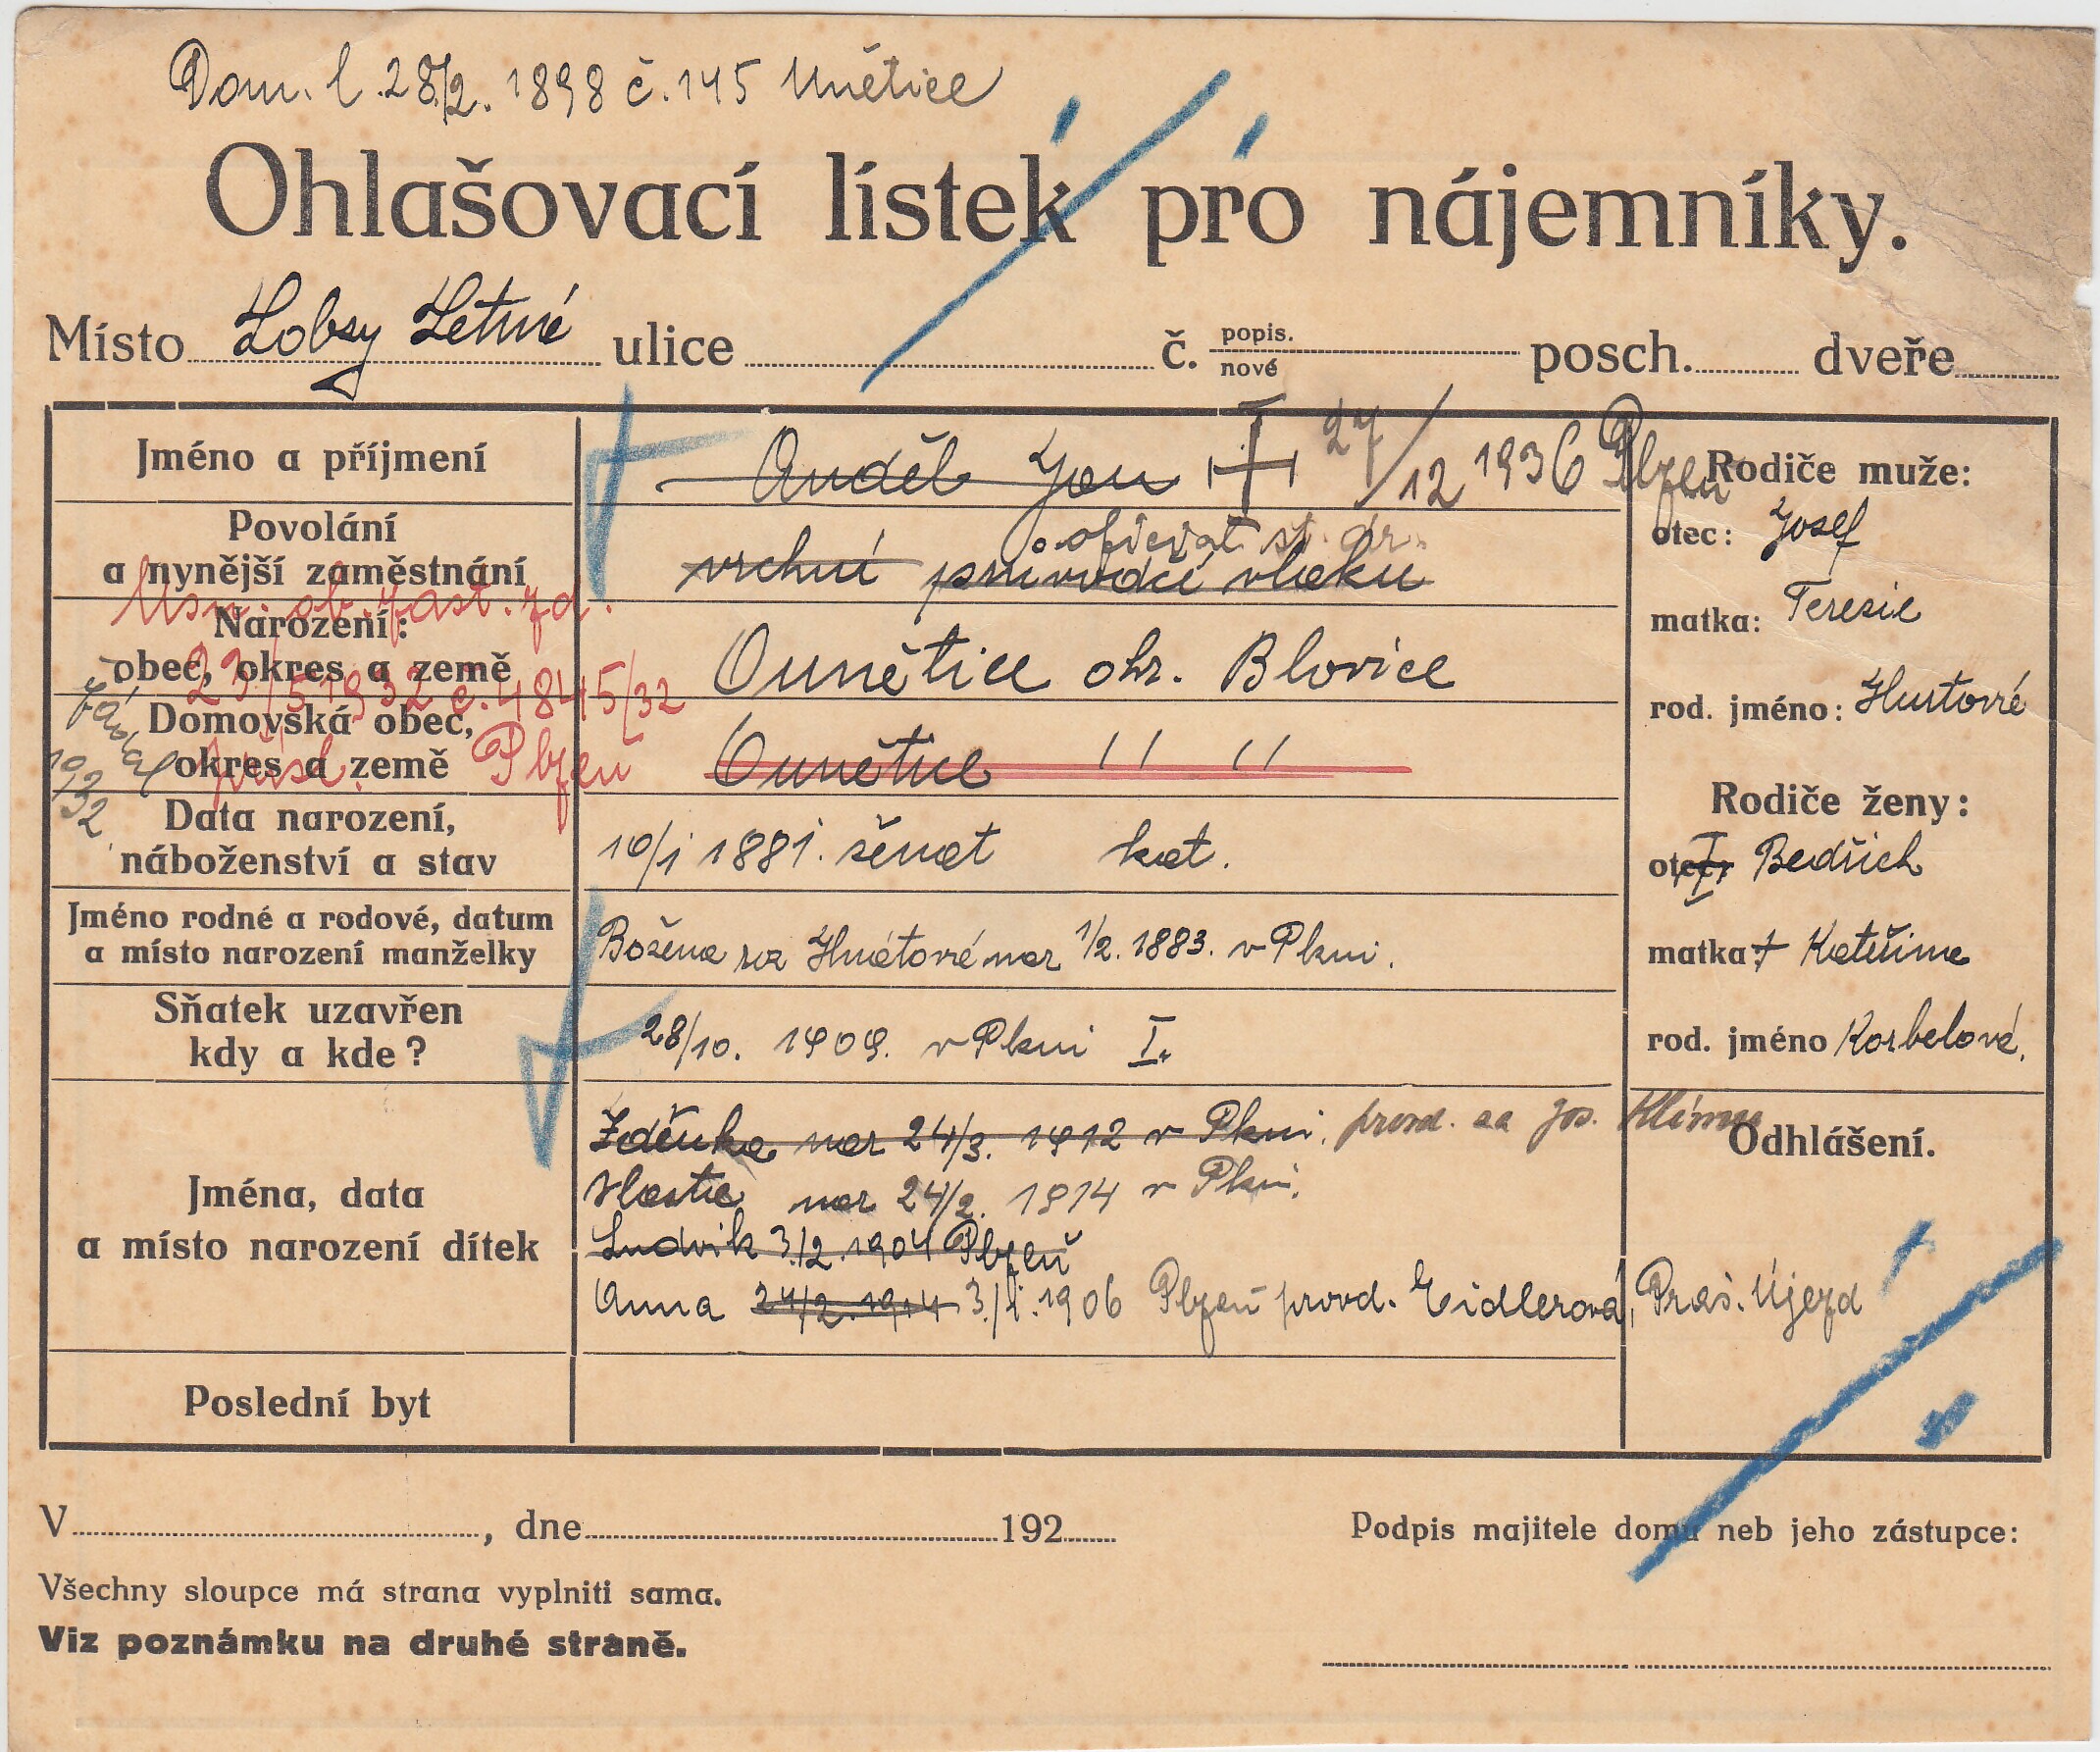 Dom. l. 28/2. 1898 č. 145 Unětice
Ohlašovací lístek pro nájemníky.
Místo Lobzy Letné ulice č. popis. nové posch. dveře
Jméno a příjmení
Anděl Jan 27/12 1936 Plzeň
Povolání
a nynější zaměstnání
oficiál st. dr.
vrchní průvodčí vlaku
Usn. ob. zast. zd.
23/5 1932 č. 4845/32
přísl. Plzeň
1932
Narození:
obec, okres a země
Ounětice okr. Blovice
Domovská obec,
okres a země
Ounětice " "
Data narození,
náboženství a stav
10/1 1881. ženat kat.
Jméno rodné a rodové, datum
a místo narození manželky
Božena roz Hnátové nar 1/2. 1883. v Plzni.
Sňatek uzavřen
kdy a kde?
28/10. 1909. v Plzni I.
Jména, data
a místo narození dítek
Zdeňka nar 24/3. 1912 v Plzni. provd. za Jos. Klímu
Vlasta nar 24/2. 1914 v Plzni.
Ludvík 3./2. 1904 Plzeň
Anna 24/2. 1914 3./1. 1906 Plzeň provd. Eidlerová, Praš. Újezd
Poslední byt
Rodiče muže:
otec: Josef
matka: Terezie
rod. jméno:
Rodiče ženy:
otec: Bedřich
matka: Kateřina
rod. jméno Korbelová.
Odhlášení.
V , dne 192
Podpis majitele domu neb jeho zástupce:
Všechny sloupce má strana vyplniti sama.
Viz poznámku na druhé straně.